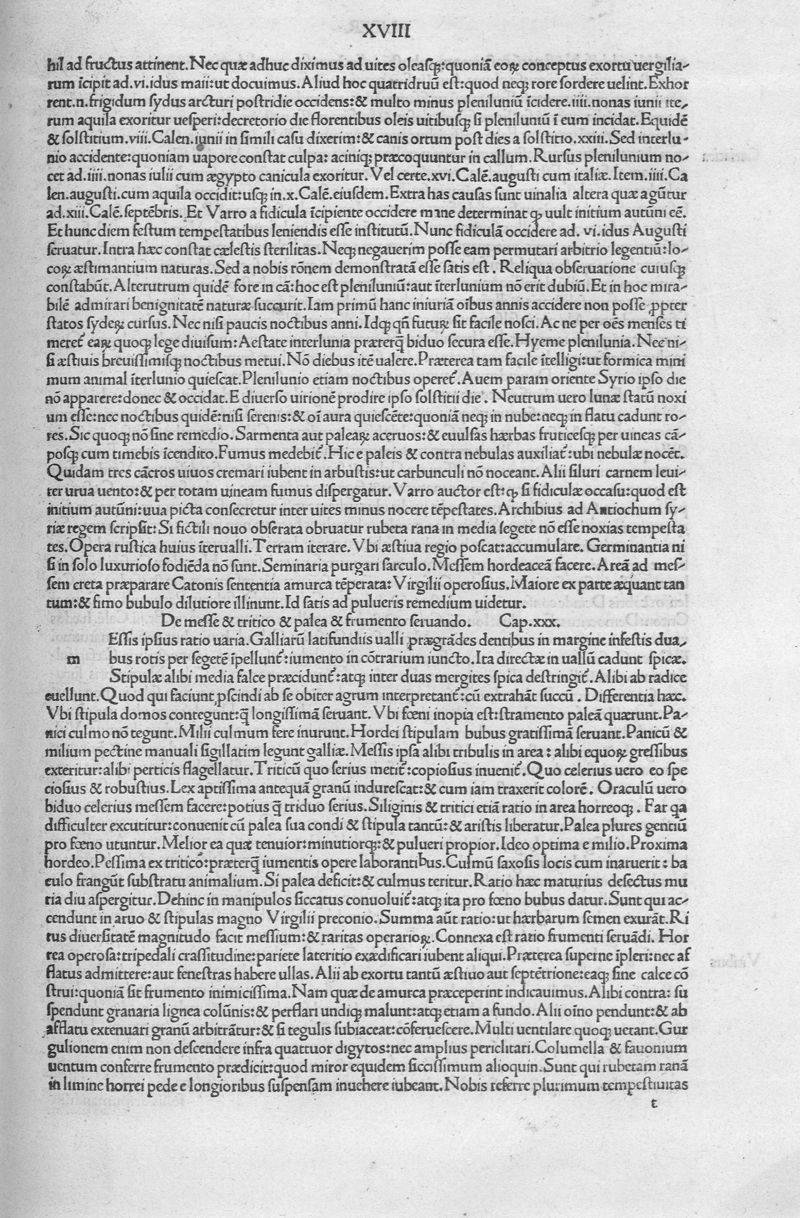 XVIII
hil ad fructus attinent. Nec quæ adhuc diximus ad uites oleasqꝫ: quoniã eoꝝ conceptus exortu uergilia-
rum ĩcipit ad. vi. idus maii: ut docuimus. Aliud hoc quatridruũ est: quod neqꝫ rore sordere uelint. Exhor
rent. n. frigidum sydus arcturi postridie occidens: & multo minus pleniluniũ ĩcidere. iiii. nonas iunii ite,
rum aquila exoritur uesperi: decretorio die florentibus oleis uitibusqꝫ si pleniluniũ ĩ eum incidat. Equidẽ
& solstitium. viii. Calen. iunii in simili casu dixerim: & canis ortum post dies a solstitio. xxiii. Sed interlu-
nio accidente: quoniam uapore constat culpa: aciniqꝫ præcoquuntur in callum. Rursus plenilunium no-
cet ad. iiii. nonas iulii cum ægypto canicula exoritur. Vel certe. xvi. Calẽ. augusti cum italiæ. Item. iiii. Ca
len. augusti. cum aquila occidit: usqꝫ in. x. Calẽ. eiusdem. Extra has causas sunt uinalia altera quæ agũtur
ad. xiii. Calẽ. septẽbris. Et Varro a fidicula ĩcipiente occidere mane determinat ꝙ uult initium autũni cẽ.
Et hunc diem festum tempestatibus leniendis esse institutũ. Nunc fidiculã occidere ad. vi. idus Augusti
seruatur. Intra hæc constat cælestis sterilitas. Neqꝫ negauerim posse eam permutari arbitrio legentiũ: lo-
coꝝ æstimantium naturas. Sed a nobis rõnem demonstratã esse satis est. Reliqua obseruatione cuiusqꝫ
constabũt. Alterutrum quidẽ fore in cã: hoc est pleniluniũ: aut ĩterlunium nõ erit dubiũ. Et in hoc mira-
bilẽ admirari benignitatẽ naturæ succurit. Iam primũ hanc iniuriã oĩbus annis accidere non posse ꝓpter
statos sydeꝝ cursus. Nec nisi paucis noctibus anni. Idqꝫ qñ futuꝝ sit facile nosci. Ac ne per oẽs menses ti
meret᷑ eaꝝ quoqꝫ lege diuisum: Aestate interlunia præterqꝫ biduo secura esse. Hyeme plenilunia. Nec ni-
si æstiuis breuissimisqꝫ noctibus metui. Nõ diebus itẽ ualere. Præterea tam facile ĩtelligi: ut formica mini
mum animal ĩterlunio quiescat. Plenilunio etiam noctibus operet᷑. Auem param oriente Syrio ipso die
nõ apparere: donec & occidat. E diuerso uirionẽ prodire ipso solstitii die. Neutrum uero lunæ statũ noxi
um esse: nec noctibus quidẽ: nisi serenis: & oĩ aura quiescẽte: quoniã neqꝫ in nube: neqꝫ in flatu cadunt ro-
res. Sic quoqꝫ nõ sine remedio. Sarmenta aut paleaꝝ aceruos: & euulsas hærbas fruticesqꝫ per uineas cã-
posqꝫ cum timebis ĩcendito. Fumus medebit᷑. Hic e paleis & contra nebulas auxiliat᷑: ubi nebulæ nocẽt.
Quidam tres cãcros uiuos cremari iubent in arbustis: ut carbunculi nõ noceant. Alii siluri carnem leui-
ter urua uento: & per totam uineam fumus dispergatur. Varro auctor est: ꝙ si fidiculæ occasu: quod est
initium autũni: uua picta consecretur inter uites minus nocere tẽpestates. Archibius ad Antiochum sy-
riæ regem scripsit: Si fictili nouo obserata obruatur rubeta rana in media segete nõ esse noxias tempesta
tes. Opera rustica huius ĩterualli. Terram iterare. Vbi æstiua regio poscat: accumulare. Germinantia ni
si in solo luxurioso fodiẽda nõ sunt. Seminaria purgari sarculo. Messem hordeaceã facere. Areã ad mes-
sem creta præparare Catonis sententia amurca tẽperata: Virgilii operosius. Maiore ex parte æquant tan
tum: & fimo bubulo dilutiore illinunt. Id satis ad pulueris remedium uidetur.
De messe & tritico & palea & frumento seruando. Cap. xxx.
Essis ipsius ratio uaria. Galliarũ latifundiis ualli prægrãdes dentibus in margine infestis dua,
m bus rotis per segetẽ ĩpellunt᷑: iumento in cõtrarium iuncto. Ita directæ in uallũ cadunt spicæ.
Stipulæ alibi media falce præcidunt᷑: atqꝫ inter duas mergites spica destringit᷑. Alibi ab radice
euellunt. Quod qui faciunt, ꝓscindi ab se obiter agrum interpretant᷑: cũ extrahãt succũ. Differentia hæc.
Vbi stipula domos contegunt: q̃ longissimã seruant. Vbi fœni inopia est: stramento paleã quærunt. Pa-
nici culmo nõ tegunt. Milii culmum fere inurunt. Hordei stipulam bubus gratissimã seruant. Panicũ &
milium pectine manuali sigillatim legunt galliæ. Messis ipsa alibi tribulis in area: alibi equoꝝ gressibus
exteritur: alibi perticis flagellatur. Triticũ quo serius metit᷑: copiosius inuenit᷑. Quo celerius uero eo spe
ciosius & robustius. Lex aptissima antequã granũ indurescat: & cum iam traxerit colorẽ. Oraculũ uero
biduo celerius messem facere: potius q̃ triduo serius. Siliginis & tritici etiã ratio in area horreoqꝫ. Far qa
difficulter excutitur: conuenit cũ palea sua condi & stipula tantũ: & aristis liberatur. Palea plures gentiũ
pro fœno utuntur. Melior ea quæ tenuior: minutiorqꝫ: & pulueri propior. Ideo optima e milio. Proxima
hordeo. Pessima ex tritico: præterq̃ iumentis opere laborantibus. Culmũ saxosis locis cum inaruerit: ba
culo frangũt substratu animalium. Si palea deficit: & culmus teritur. Ratio hæc maturius desectus mu
ria diu aspergitur. Dehinc in manipulos siccatus conuoluit᷑: atqꝫ ita pro fœno bubus datur. Sunt qui ac-
cendunt in aruo & stipulas magno Virgilii preconio. Summa aũt ratio: ut hærbarum semen exurãt. Ri
tus diuersitatẽ magnitudo facit messium: & raritas operarioꝝ. Connexa est ratio frumenti seruãdi. Hor
rea operosa: tripedali crassitudine: pariete lateritio exædificari iubent aliqui. Præterea superne ĩpleri: nec af
flatus admittere: aut fenestras habere ullas. Alii ab exortu tantũ æstiuo aut septẽtrione: eaqꝫ sine calce cõ
strui: quoniã sit frumento inimicissima. Nam quæ de amurca præceperint indicauimus. Alibi contra: su
spendunt granaria lignea colũnis: & perflari undiqꝫ malunt: atqꝫ etiam a fundo. Alii oĩno pendunt: & ab
afflatu extenuari granũ arbitrãtur: & si tegulis subiaceat: cõferuescere. Multi uentilare quoqꝫ uetant. Gur
gulionem enim non descendere infra quattuor digytos: nec amplius periclitari. Columella & fauonium
uentum conferre frumento prædicit: quod miror equidem siccissimum alioquin. Sunt qui rubetam ranã
in limine horrei pede e longioribus suspensam inuehere iubeant. Nobis referre plurimum tempestiuitas
t